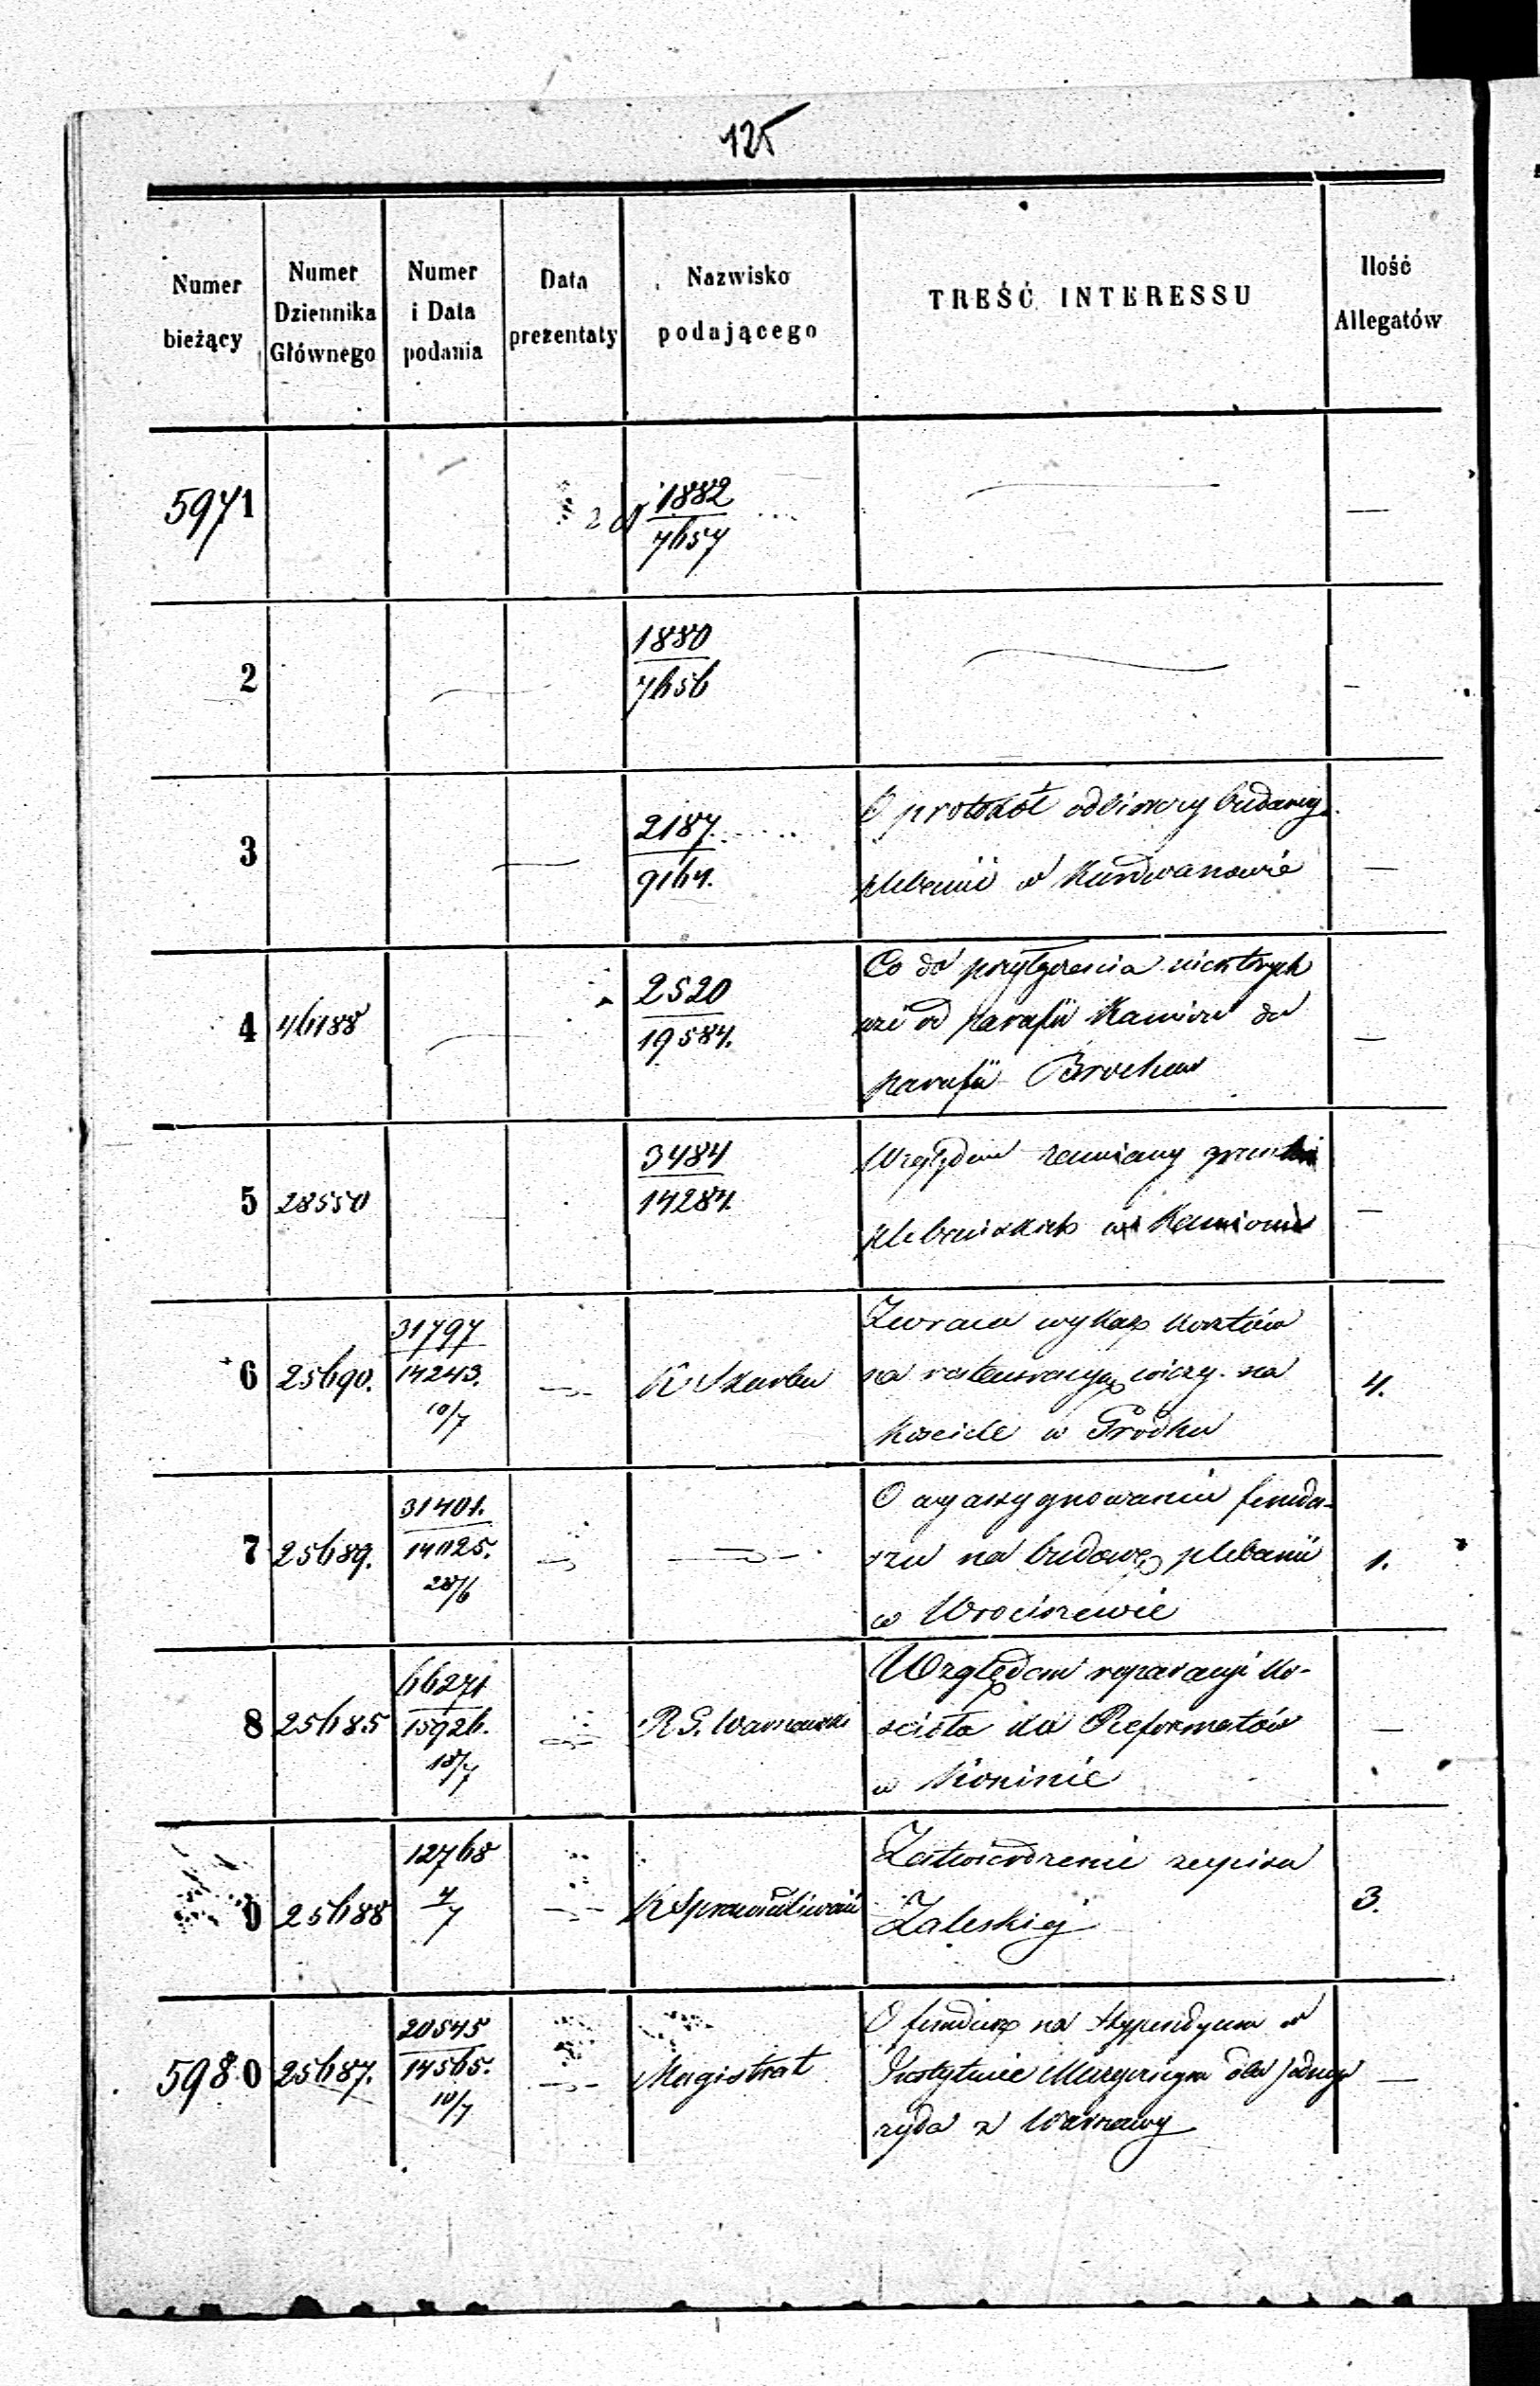 125
Numer bieżący
Numer Dziennika Głównego
Numer i Data podania
Data prezentaty
Nazwisko podającego
TREŚĆ INTERESSU
Ilość Allegatów
5971
1882
7657
—
2
1880
7656
—
3
2187
9164.
O protokół odbiorczy budowy
plebanii w Kurdwanowie
—
4
46188
2520
19584.
Co do przyłączenia niektórych
wsi od parafii Kamion do
parafii Brochów
—
5
28550
3484
14284.
Względem zamiany gruntów
plebańskich w Kamionie
—
6
25690.
31797
14243.
10/7
K Skarbu
Zwraca wykaz kosztów
na restauracyę wieży na
kościele w Gródku
4.
7
25689.
31401.
14025.
28/6
O wyassygnowaniu fundu-
szu na budowę plebanii
w Wrociszewie
1.
8
25685
66271
15926.
18/7
R G. Warszawski
Względem reparacyi ko-
ścioła XX Reformatów
w Koninie
—
9
25688
12768
4/7
K Sprawiedliwości
Zatwierdzenie zapisu
Zaleskiej
3.
5980
25687.
20545
14565.
10/7
Magistrat
O fundusz na stypendyum w
Instytucie Muzycznym dla jednego
żyda z Warszawy
—